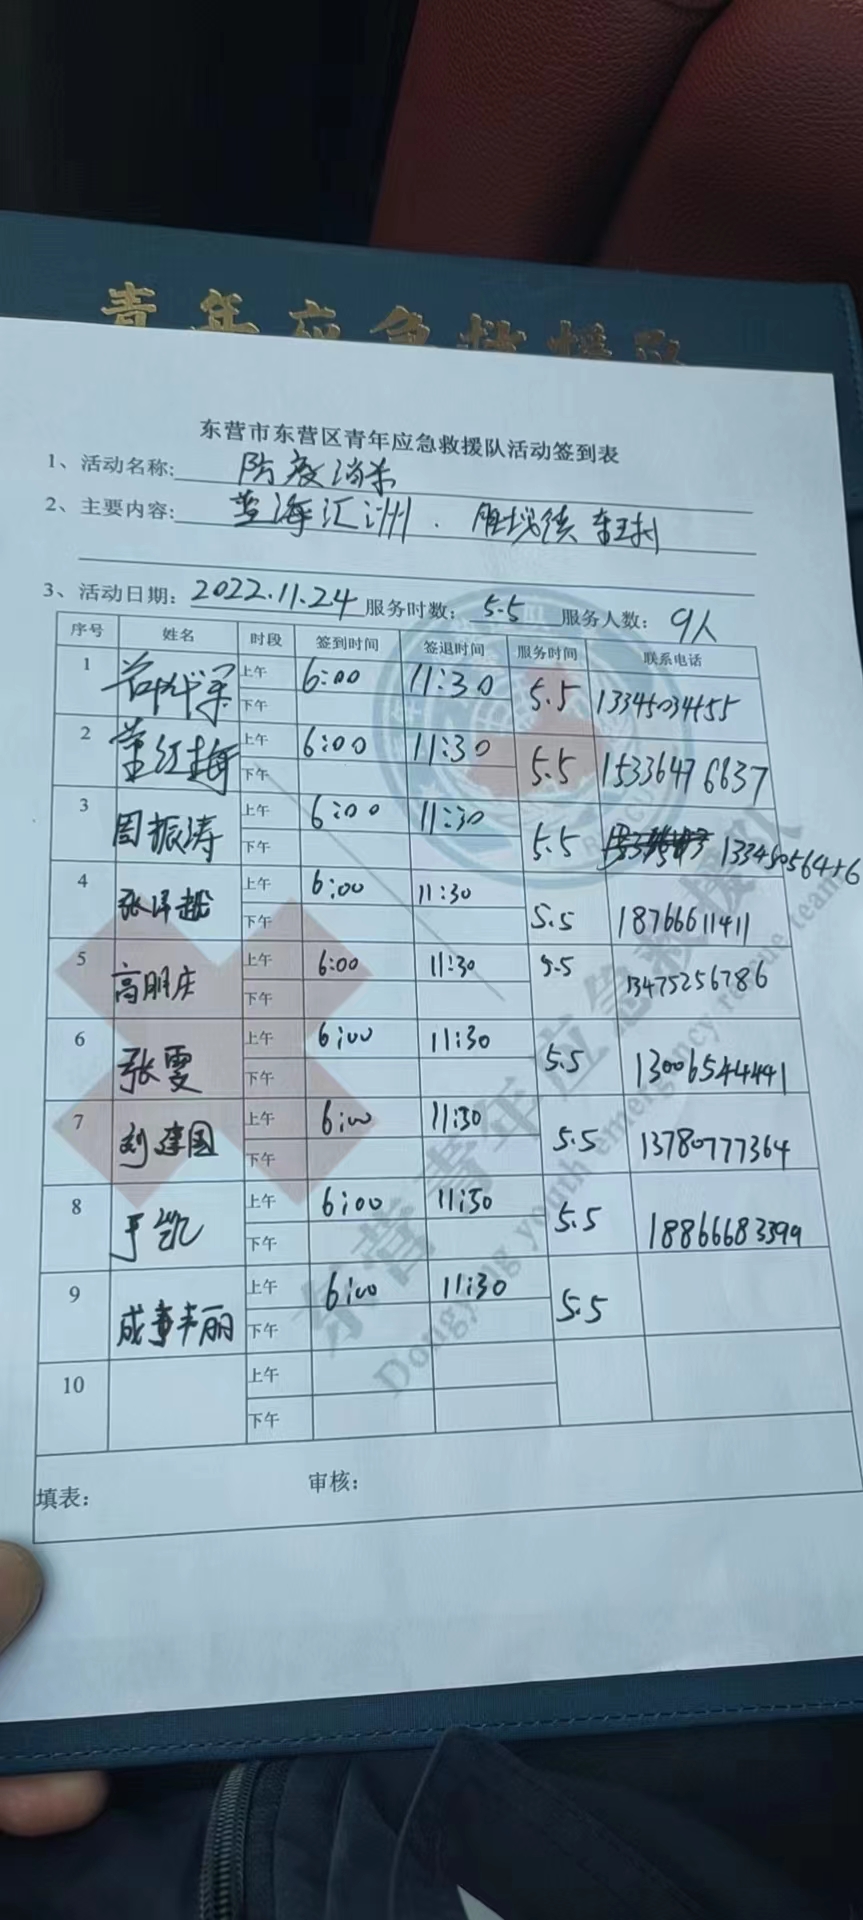 青年应急救援队
东营市东营区青年应急救援队活动签到表
1、活动名称: 防疫消杀
2、主要内容: 蓝海汇洲.
3、活动日期: 2022.11.24 服务时数: 5.5 服务人数: 9人
序号 姓名 时段 签到时间 签退时间 服务时间 联系电话
1 上午 6:00 11:30 5.5
下午
2 董红梅 上午 6:00 11:30 5.5 15336476637
下午
3 周振涛 上午 6:00 11:30 5.5
下午
4 张泽越 上午 6:00 11:30 5.5 18766611411
下午
5 高朋庆 上午 6:00 11:30 5.5 13475256786
下午
6 张雯 上午 6:00 11:30 5.5 13006544441
下午
7 刘建国 上午 6:00 11:30 5.5 13780777364
下午
8 于凯 上午 6:00 11:30 5.5 18866683399
下午
9 上午 6:00 11:30 5.5
下午
10 上午
下午
填表: 审核:
东营青年应急救援队
Dongying youth emergency rescue team